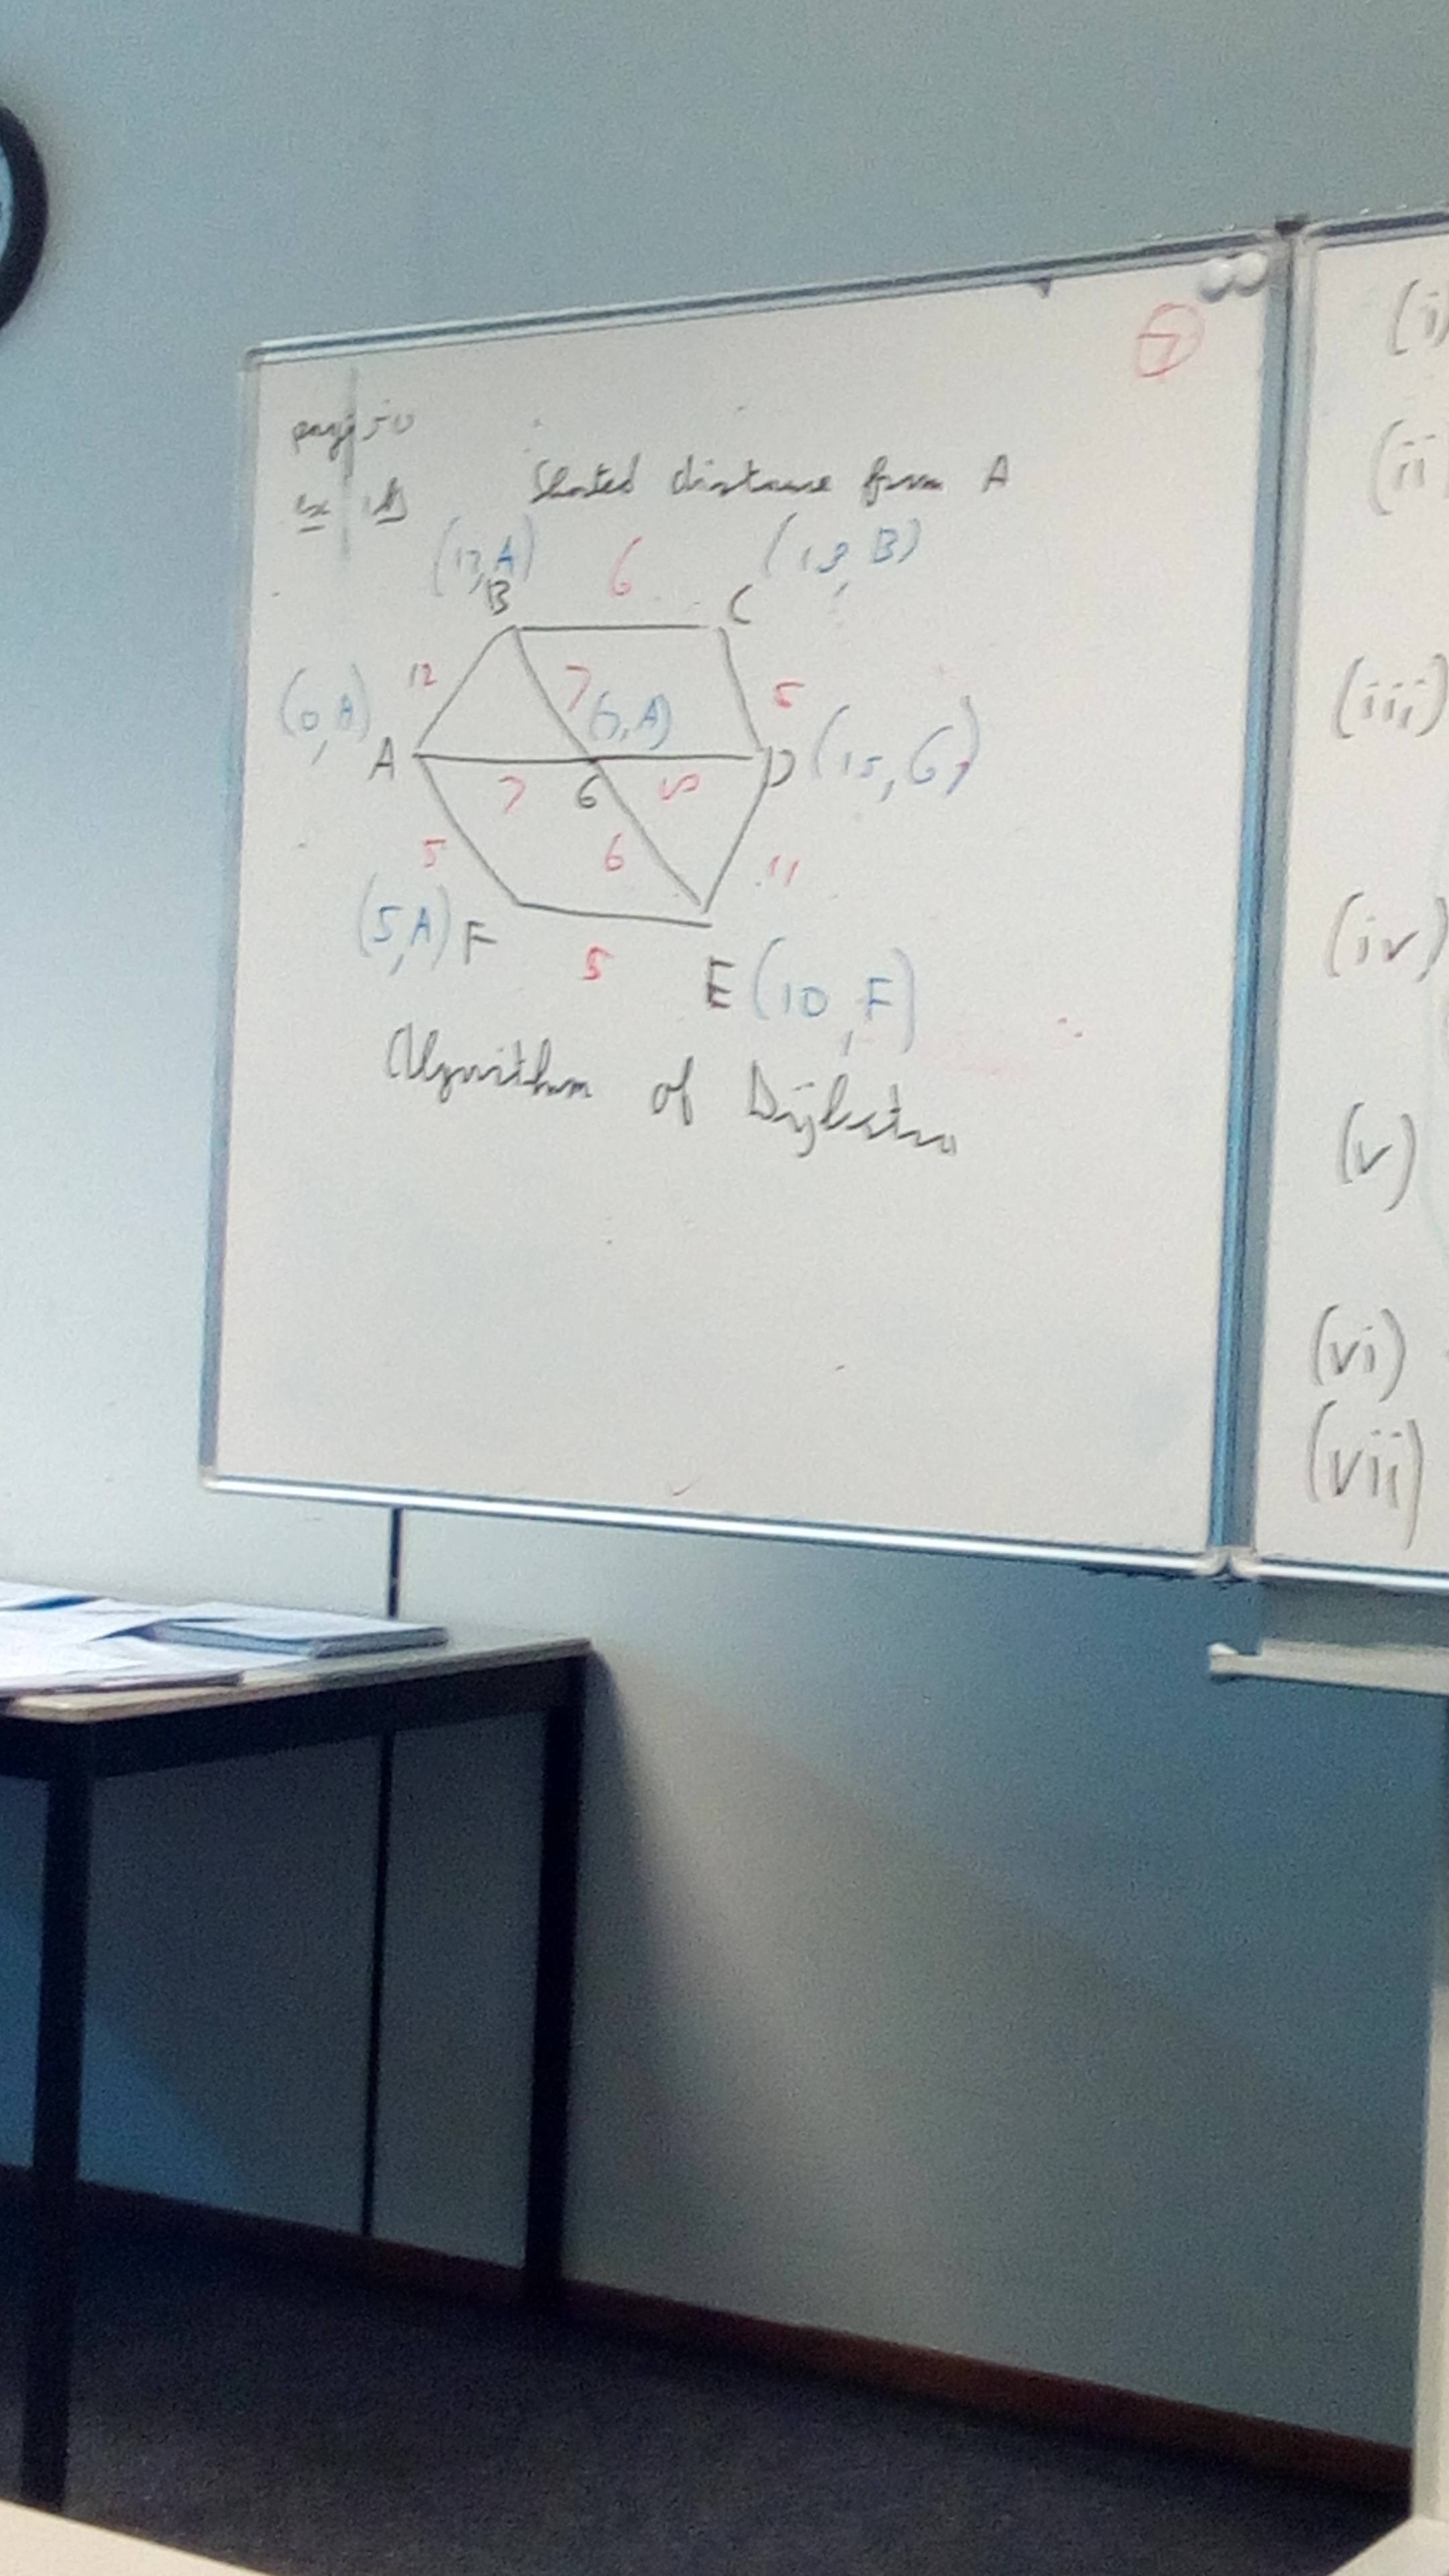 7
page 50
ex
Shortest distance from A
(12, A) 6 (18, B)
B C
12 7 5
(0, A) (7, A)
A D (15, G)
7 G 8
5 6 11
(5, A) F
5 E (10, F)
Algorithm of Dijkstra
(i)
(ii)
(iii)
(iv)
(v)
(vi)
(vii)